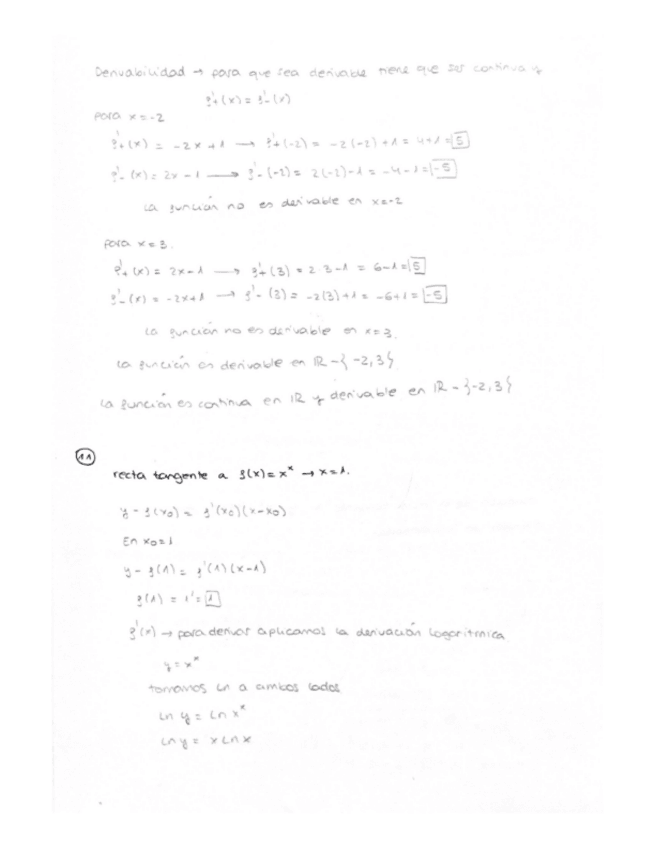 Derivabilidad → para que sea derivable tiene que ser continua y
f'₊(x) = f'₋(x)
para x=-2
f'₊(x) = -2x+1 → f'₊(-2) = -2(-2)+1 = 4+1 = 5
f'₋(x) = 2x-1 → f'₋(-2) = 2(-2)-1 = -4-1 = -5
La función no es derivable en x=-2
para x=3.
f'₊(x) = 2x-1 → f'₊(3) = 2·3-1 = 6-1 = 5
f'₋(x) = -2x+1 → f'₋(3) = -2(3)+1 = -6+1 = -5
La función no es derivable en x=3.
La función es derivable en ℝ-{-2,3}
La función es continua en ℝ y derivable en ℝ-{-2,3}
11
recta tangente a f(x)=x^x → x=1.
y - f(x₀) = f'(x₀)(x-x₀)
En x₀=1
y - f(1) = f'(1)(x-1)
f(1) = 1¹ = 1
f'(x) → para derivar aplicamos la derivación logarítmica
y = x^x
tomamos Ln a ambos lados
Ln y = Ln x^x
Ln y = x Ln x